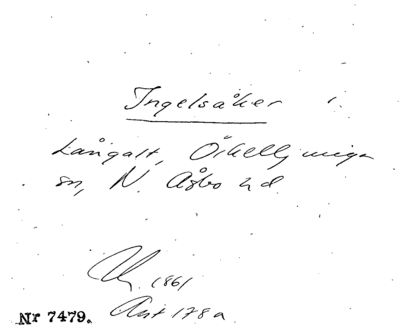 Ingelsåker i
Långalt, Örkelljunga
sn, N. Åsbo hd
1861
Akt 178a
Nr 7479.